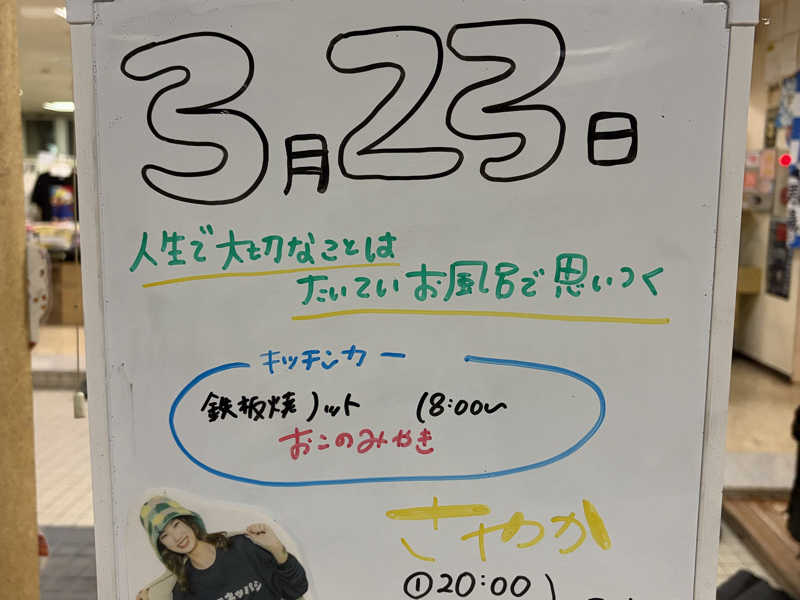 3月23日
人生で大切なことは
たいていお風呂で思いつく
キッチンカー
鉄板焼ノット 18:00〜
おこのみやき
さやか
①20:00